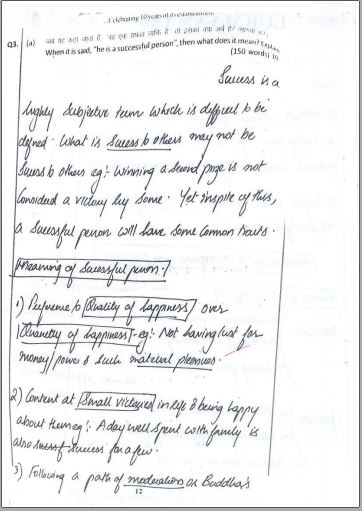 ...Celebrating 10 years of
Q3. (a) जब यह कहा जाता है, 'वह एक सफल व्यक्ति है' तो इसका क्या अर्थ है?
When it is said, "he is a successful person", then what does it mean? Explain
(150 words) 10
Success is a
highly subjective term which is difficult to be
defined. What is success to others may not be
success to others eg:- winning a second prize is not
considered a victory by some. Yet inspite of this,
a successful person will have some common traits.
Meaning of successful person:-
1) Preference to Quality of happiness over
Quantity of happiness - eg:- Not having lust for
money/power & such material pleasures.
2) Content at small victories in life & being happy
about them eg:- A day well spent with family is
also success for a few.
3) Following a path of moderation or Buddha's
12